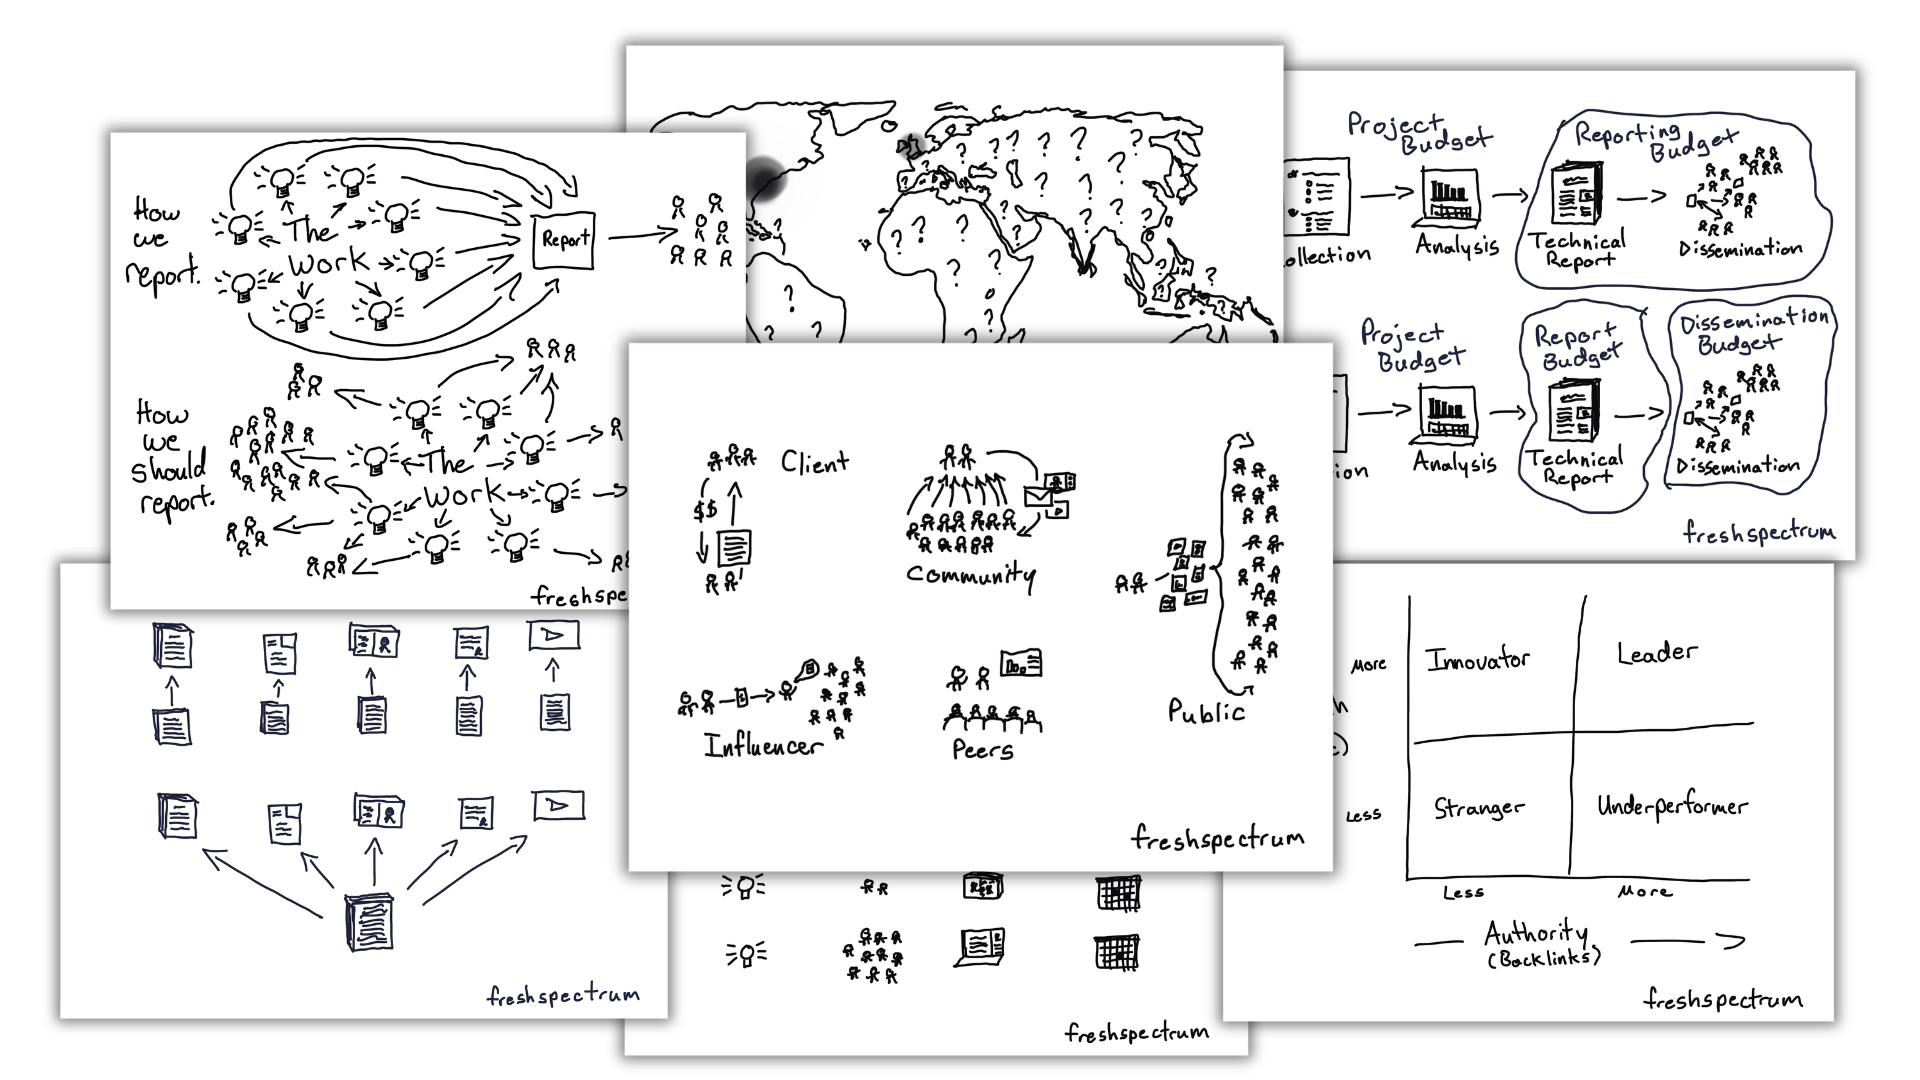 How
we
report.
The
Work
Report
How
we
should
report.
The
Work
freshspe
? ? ? ? ? ?
Project
Budget
Reporting
Budget
ollection
Analysis
Technical
Report
Dissemination
Project
Budget
Report
Budget
Dissemination
Budget
ion
Analysis
Technical
Report
Dissemination
freshspectrum
Client
$$
Community
Public
Influencer
Peers
freshspectrum
freshspectrum
freshspectrum
More
Innovator
Leader
Less
Stranger
Underperformer
Less
More
Authority
(Backlinks)
freshspectrum